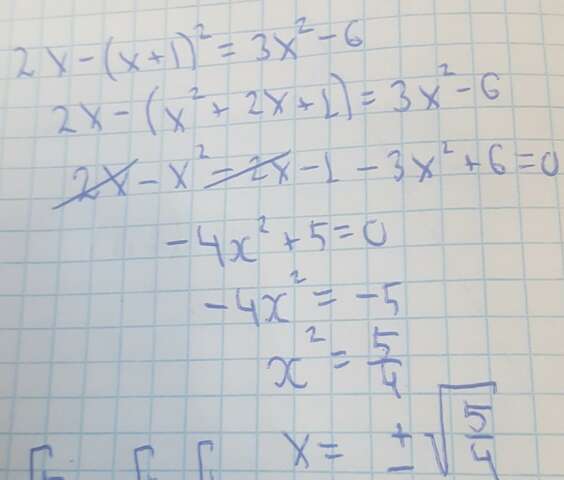 2x - (x+1)² = 3x² - 6
2x - (x² + 2x + 1) = 3x² - 6
2x - x² - 2x - 1 - 3x² + 6 = 0
-4x² + 5 = 0
-4x² = -5
x² = 5/4
x = ± √(5/4)